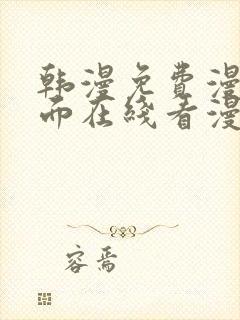 韩漫免费漫
而在线看漫
容焉